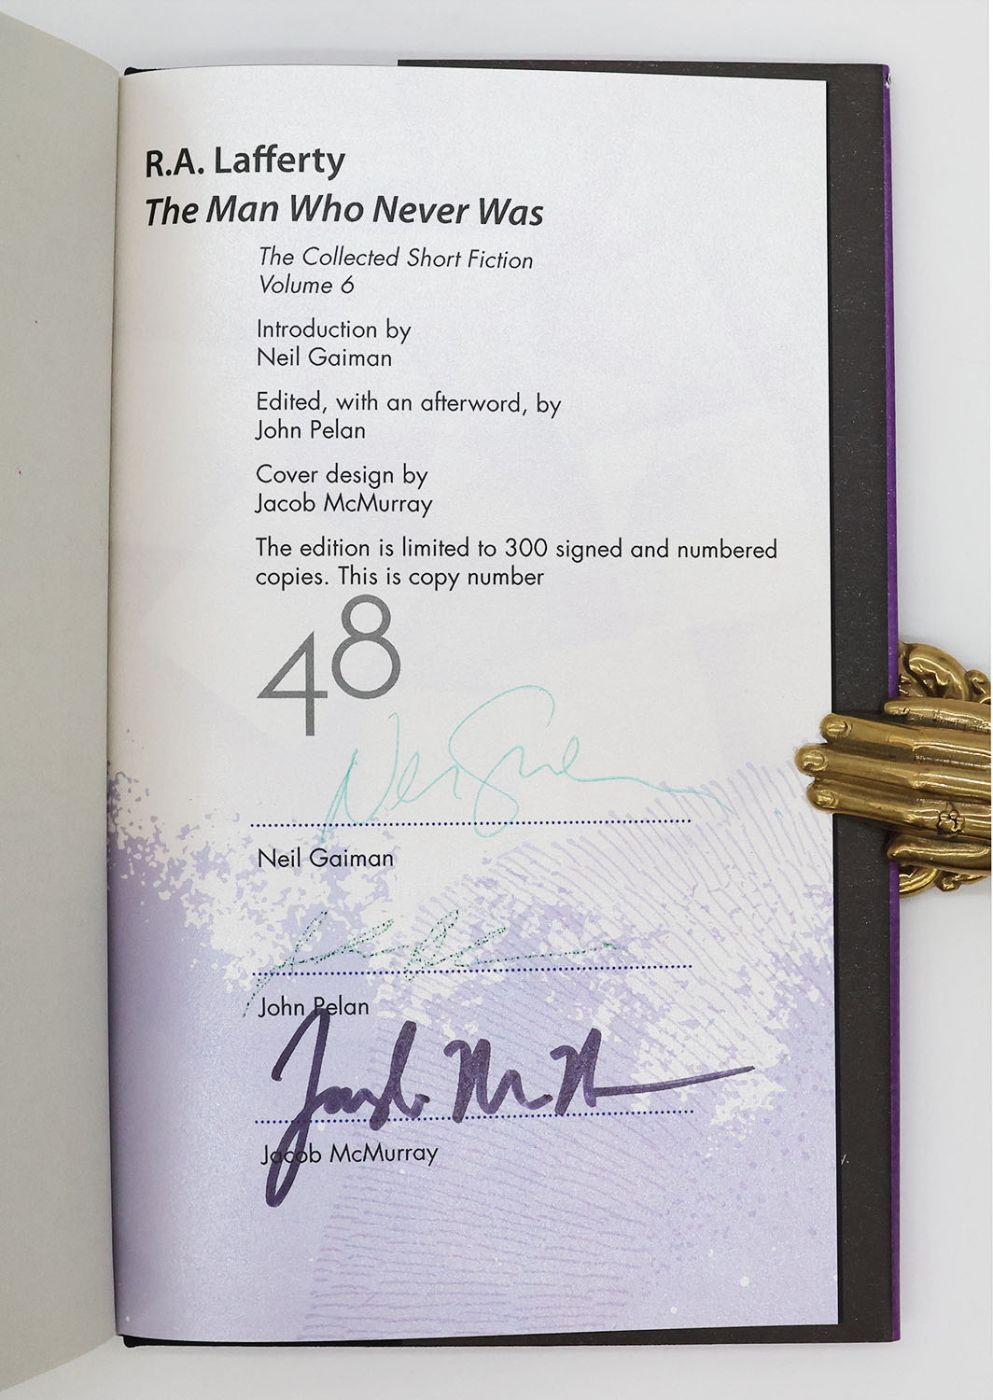 R.A. Lafferty
The Man Who Never Was
The Collected Short Fiction
Volume 6
Introduction by
Neil Gaiman
Edited, with an afterword, by
John Pelan
Cover design by
Jacob McMurray
The edition is limited to 300 signed and numbered
copies. This is copy number
48
Neil Gaiman
John Pelan
Jacob McMurray